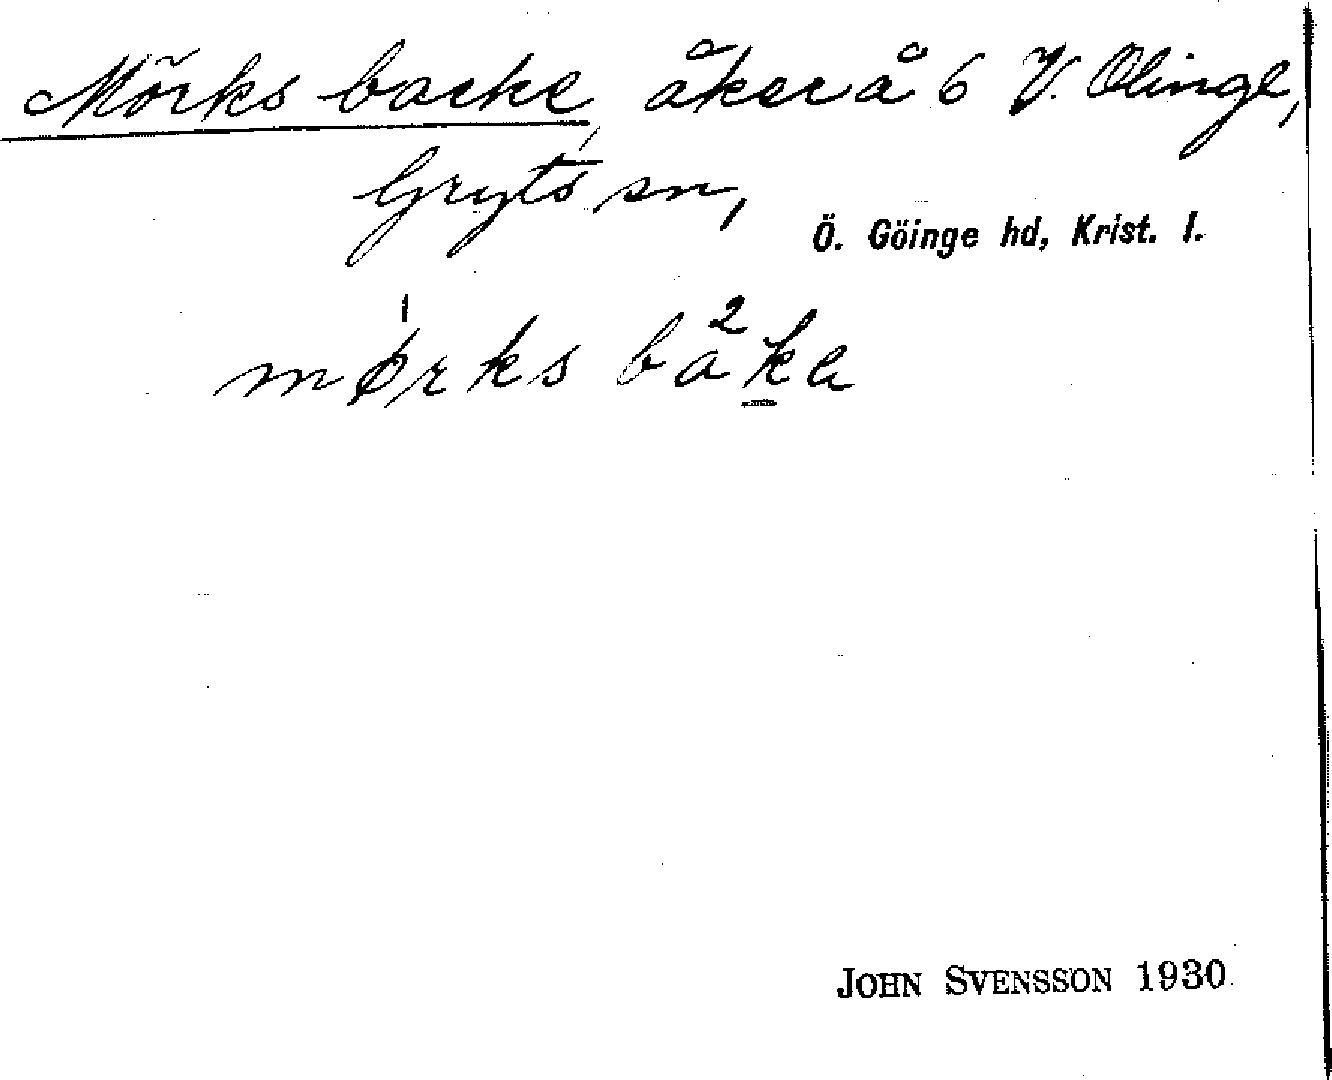 Mörks backe, åker å 6 V. Olinge,
Gryts sn,
Ö. Göinge hd, Krist. l.
mørks baka
JOHN SVENSSON 1930